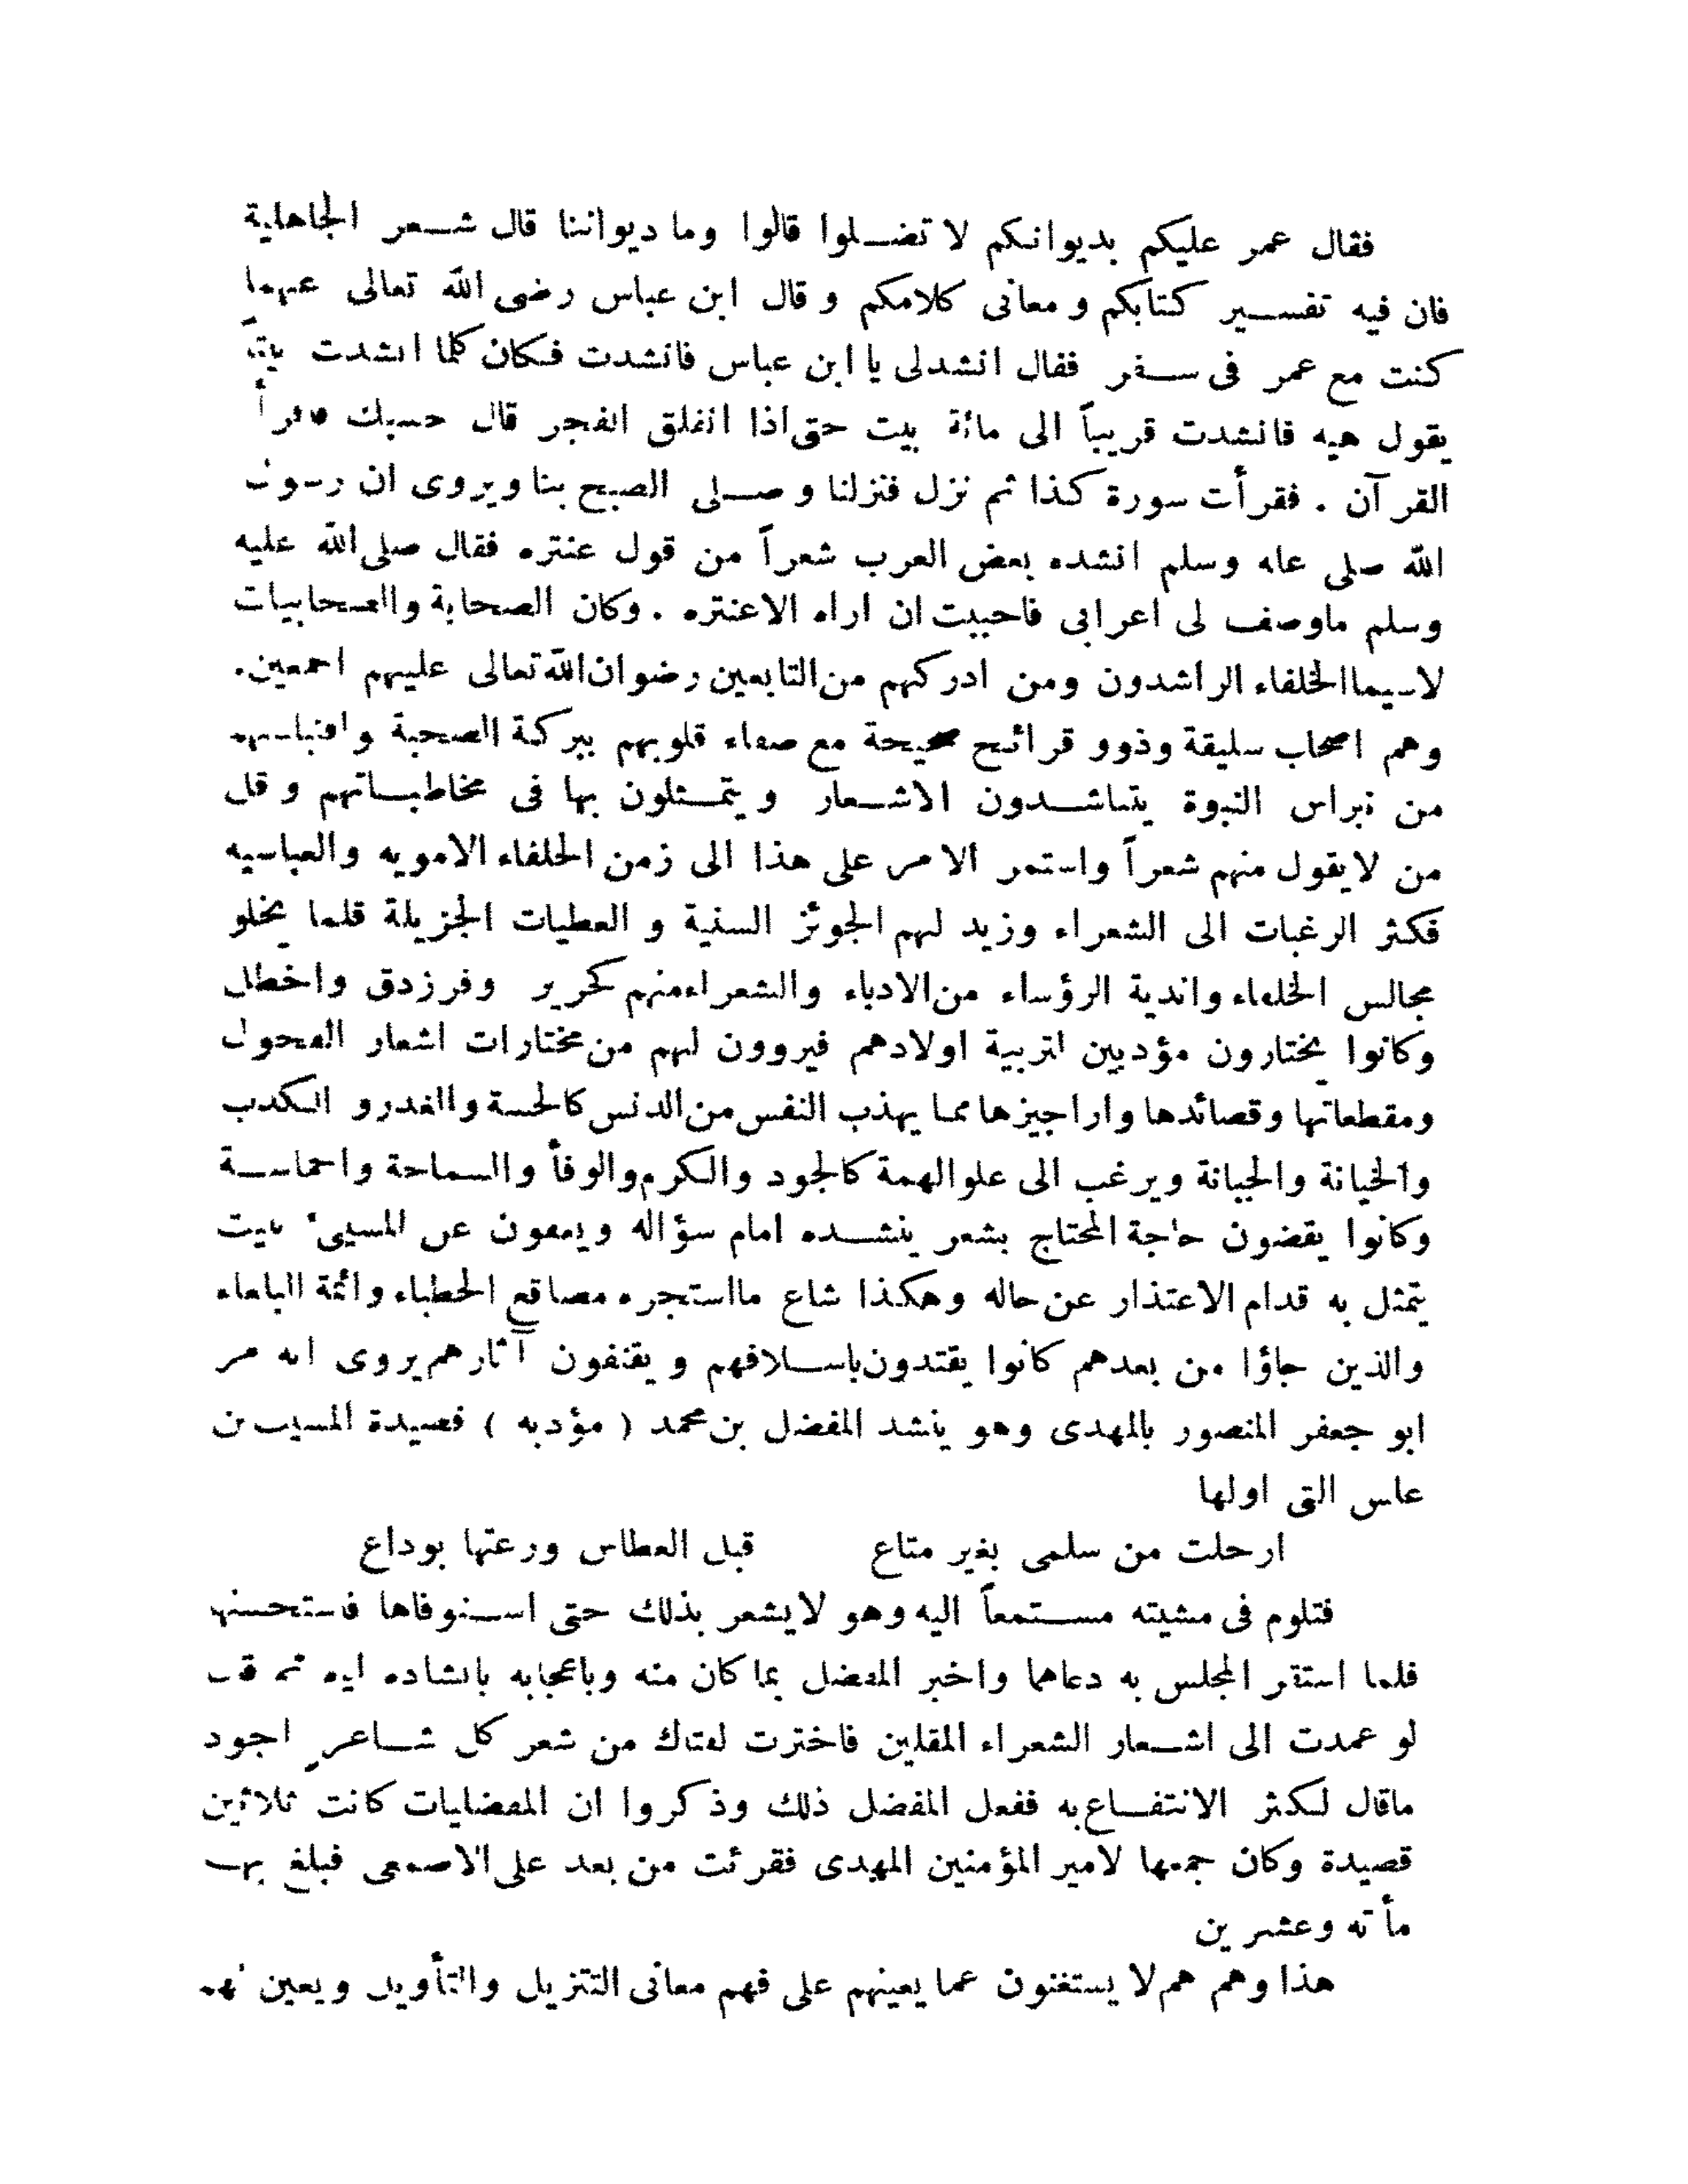 فقال عمر عليكم بديوانكم لا تضلوا قالوا وما ديواننا قال شعر الجاهلية
فان فيه تفسير كتابكم و معانى كلامكم و قال ابن عباس رضى الله تعالى عنهما
كنت مع عمر فى سفر فقال انشدلى يا ابن عباس فانشدت فكان كلما انشدت بيتاً
يقول هيه فانشدت قريباً الى مائة بيت حتى اذا انفلق الفجر قال حسبك فاقرأ
القرآن . فقرأت سورة كذا ثم نزل فنزلنا و صلى الصبح بنا ويروى ان رسول
الله صلى عله وسلم انشده بعض العرب شعراً من قول عنتره فقال صلى الله عليه
وسلم ماوصف لى اعرابى فاحببت ان اراه الاعنتره . وكان الصحابة والصحابيات
لاسيما الخلفاء الراشدون ومن ادركهم من التابعين رضوان الله تعالى عليهم اجمعين.
وهم اصحاب سليقة وذوو قرائح صحيحة مع صفاء قلوبهم ببركة الصحبة واقتباسهم
من نبراس النبوة يتناشدون الاشعار و يتمثلون بها فى مخاطباتهم و قل
من لايقول منهم شعراً واستمر الامر على هذا الى زمن الخلفاء الامويه والعباسيه
فكثر الرغبات الى الشعراء وزيد لهم الجوئز السنية و العطيات الجزيلة قلما يخلو
مجالس الخلفاء واندية الرؤساء من الادباء والشعراء منهم كجرير وفرزدق واخطل
وكانوا يختارون مؤدبين لتربية اولادهم فيروون لهم من مختارات اشعار الفحول
ومقطعاتها وقصائدها واراجيزها مما يهذب النفس من الدنس كالخسة والغدر و الكذب
والخيانة والجبانة ويرغب الى علو الهمة كالجود والكرم والوفأ والسماحة واحماسة
وكانوا يقضون حاجة المحتاج بشعر ينشده امام سؤاله ويعفون عن المسيئ ببيت
يتمثل به قدام الاعتذار عن حاله وهكذا شاع مااستجره مصاقع الخطباء وائمة البلغاء
والذين جاؤا من بعدهم كانوا يقتدون باسلافهم و يقتفون آثارهم يروى انه مر
ابو جعفر المنصور بالمهدى وهو ينشد المفضل بن محمد ( مؤدبه ) قصيدة المسيب بن
علس التى اولها
ارحلت من سلمى بغير متاع قبل العطاس ورعتها بوداع
فتلوم فى مشيته مستمعاً اليه وهو لايشعر بذلك حتى استوفاها فاستحسنها
فلما استقر المجلس به دعاهما واخبر المفضل بما كان منه وباعجابه بانشاده ايه ثم قال
لو عمدت الى اشعار الشعراء المقلين فاخترت لفتاك من شعر كل شاعر اجود
ماقال لكثر الانتفاع به ففعل المفضل ذلك وذكروا ان المفضليات كانت ثلاثين
قصيدة وكان جمعها لامير المؤمنين المهدى فقرئت من بعد على الاصمعى فبلغ بها
مأته وعشرين
هذا وهم هم لا يستغنون عما يعينهم على فهم معانى التنزيل والتأويل ويعين لهم